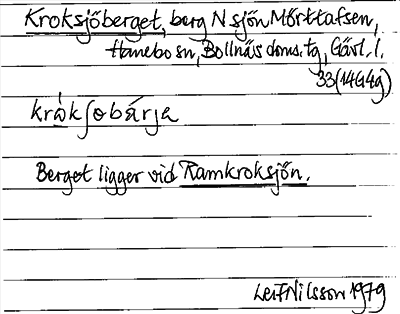 Kroksjöberget, berg N sjön Mörttafsen,
Hanebo sn, Bollnäs doms.tg, Gävl. l.
33(14G4g)
kràkʃobárja
Berget ligger vid Ramkroksjön.
Leif Nilsson 1979